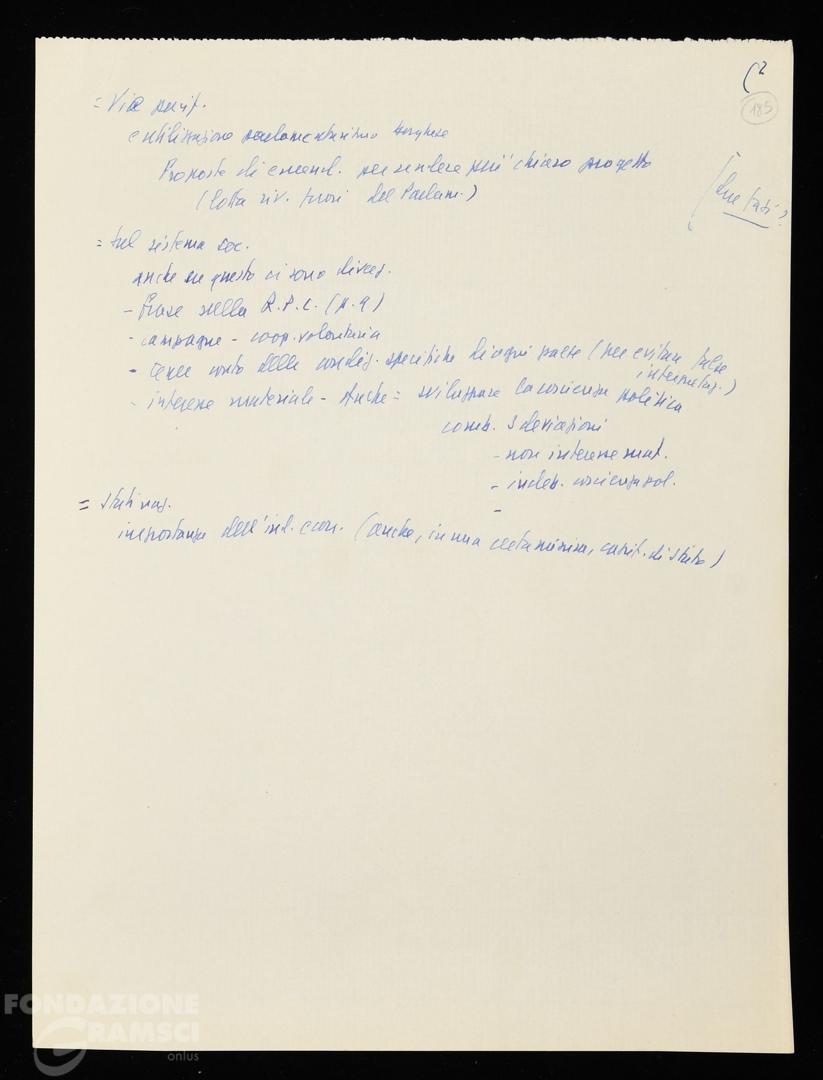 (2
185
= Vie pacif.
e utilizzazione parlamentarismo borghese
Proposte di emend. per rendere più chiaro progetto
(lotta riv. fuori del Parlam.)
(due fasi?
= sul sistema soc.
anche su questo ci sono diverg.
- Frase sulla R.P.C. (p. 9)
- campagne - coop. volontaria
- tener conto delle condiz. specifiche di ogni paese (per evitare false
interpretaz.)
- interesse materiale - Anche = sviluppare la coscienza politica
comb. 3 deviazioni
- non interesse mat.
- indeb. coscienza pol.
-
= Stati naz.
importanza dell'ind. econ. (anche, in una certa misura, capit. di Stato)
FONDAZIONE
GRAMSCI
onlus